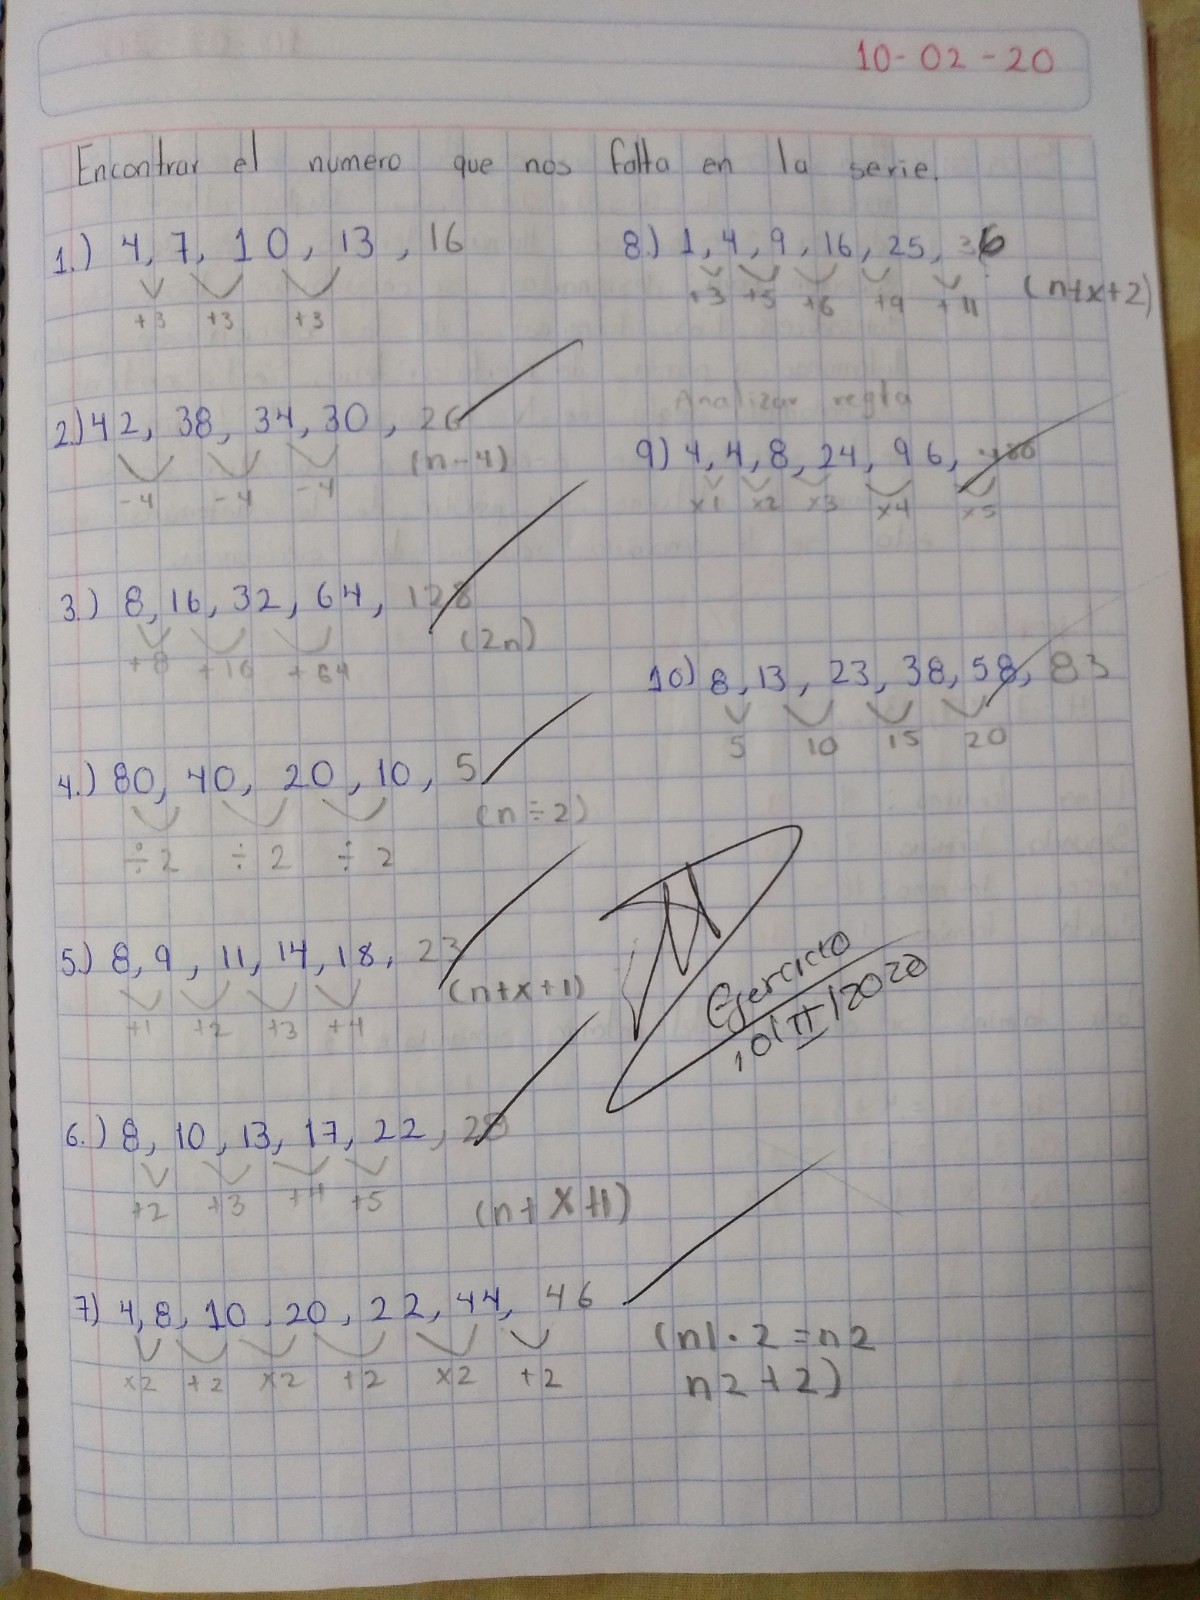 10-02-20
Encontrar el numero que nos falta en la serie.
1.) 4, 7, 10, 13, 16
+3 +3 +3
2.) 42, 38, 34, 30, 26
(n-4)
-4 -4 -4
3.) 8, 16, 32, 64, 128
(2n)
+8 +16 +64
4.) 80, 40, 20, 10, 5
(n÷2)
÷2 ÷2 ÷2
5.) 8, 9, 11, 14, 18, 23
(n+x+1)
+1 +2 +3 +4
6.) 8, 10, 13, 17, 22, 28
+2 +3 +4 +5
(n+x+1)
7) 4, 8, 10, 20, 22, 44, 46
x2 +2 x2 +2 x2 +2
(n1·2=n2
n2+2)
8.) 1, 4, 9, 16, 25, 36
+3 +5 +6 +9 +11
(n+x+2)
Analizar regla
9) 4, 4, 8, 24, 96, 480
x1 x2 x3 x4 x5
10) 8, 13, 23, 38, 58, 83
5 10 15 20
Ejercicio
10/II/2020